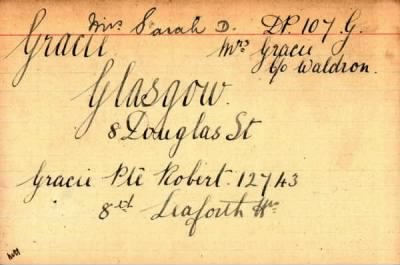 Miss Sarah D. D.P. 107 G.
Gracie Mrs Gracie
c/o Waldron.
Glasgow.
8 Douglas St
Gracie Pte Robert. 12743
8th Seaforth Hrs